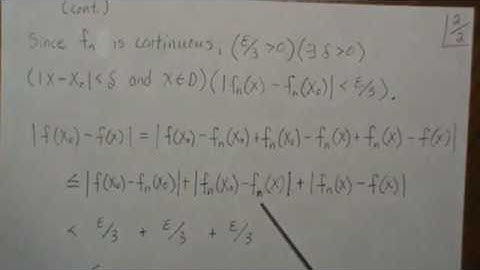 (cont.)
2/2
Since fₙ is continuous, (ε/3 > 0)(∃ δ > 0)
(|x-x₀| < δ and x∈D)(|fₙ(x) - fₙ(x₀)| < ε/3).
|f(x₀) - f(x)| = |f(x₀) - fₙ(x₀) + fₙ(x₀) - fₙ(x) + fₙ(x) - f(x)|
≤ |f(x₀) - fₙ(x₀)| + |fₙ(x₀) - fₙ(x)| + |fₙ(x) - f(x)|
< ε/3 + ε/3 + ε/3